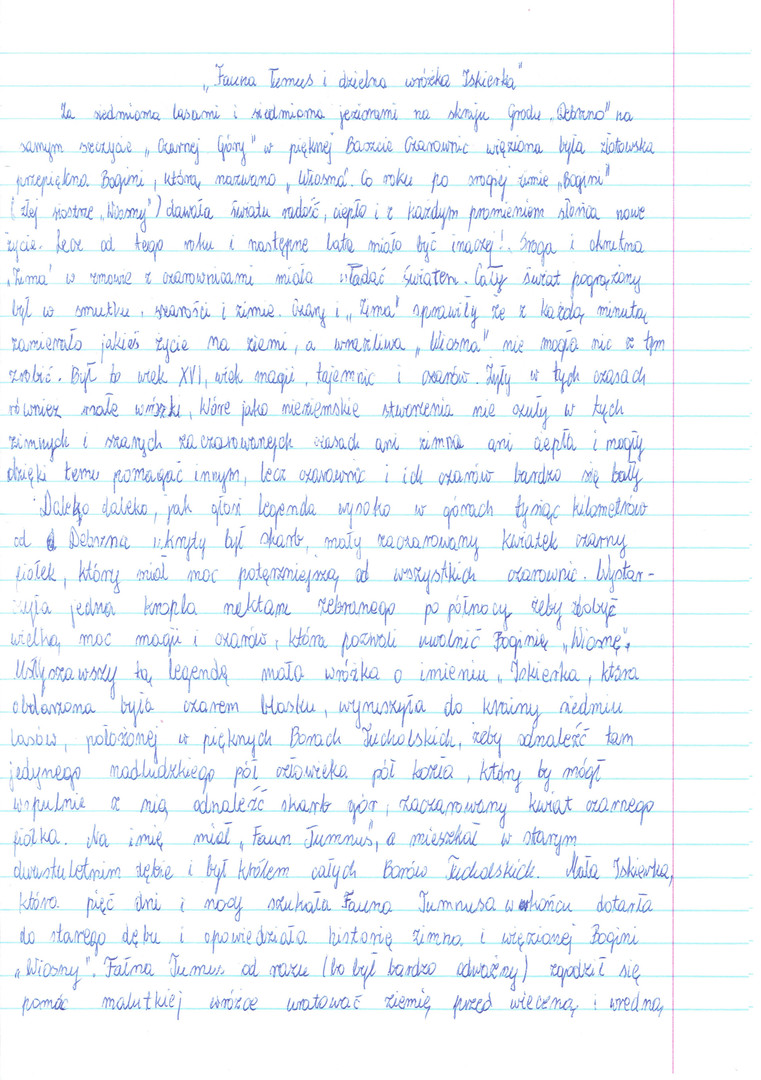 „Fauna Tumus i dzielna wróżka Iskierka"
Za siedmioma lasami i siedmioma jeziorami na skraju grodu „Debrzno" na
samym szczycie „Czarnej Góry" w pięknej Baszcie Czarownic więziona była złotowska
przepiękna Bogini, którą nazwano „Wiosna". Co roku po srogiej zimie „Bogini"
(złej siostrze „Wiosny") dawała światu radość, ciepło i z każdym promieniem słońca nowe
życie. Lecz od tego roku i następne lata miało być inaczej!. Sroga i okrutna
„Zima" w zmowie z czarownicami miała władać światem. Cały świat pogrążony
był w smutku, szarości i zimie. Czary i „Zima" sprawiły że z każdą minutą
zamierało jakieś życie na ziemi, a wrażliwa „Wiosna" nie mogła nic z tym
zrobić. Był to wiek XVI, wiek magii, tajemnic i czarów. Żyły w tych czasach
również małe wróżki, które jako nieziemskie stworzenia nie czuły w tych
zimnych i szarych zaczarowanych czasach ani zimna ani ciepła i mogły
dzięki temu pomagać innym, lecz czarownic i ich czarów bardzo się bały
Daleko daleko, jak głosi legenda wysoko w górach tysiąc kilometrów
od Debrzna ukryty był skarb, mały zaczarowany kwiatek czarny
fiołek, który miał moc potężniejszą od wszystkich czarownic. Wystar-
czyła jedna kropla nektaru zebranego po północy żeby zdobyć
wielką moc magii i czarów, która pozwoli uwolnić Boginię „Wiosnę".
Usłyszawszy tą legendę mała wróżka o imieniu „Iskierka, która
obdarzona była czarem blasku, wyruszyła do krainy siedmiu
lasów, położonej w pięknych Borach Tucholskich, żeby odnaleźć tam
jedynego nadludzkiego pół człowieka pół kozła, który by mógł
wspulnie z nią odnaleźć skarb gór, zaczarowany kwiat czarnego
fiołka. Na imię miał „Faun Tumnus", a mieszkał w starym
dwustuletnim dębie i był królem całych Borów Tucholskich. Mała Iskierka,
która pięć dni i nocy szukała Fauna Tumnusa w końcu dotarła
do starego dębu i opowiedziała historię zimna i więzionej Bogini
„Wiosny". Fałna Tumus od razu (bo był bardzo odważny) zgodził się
pomóc malutkiej wróżce uratować ziemię przed wieczną i wredną